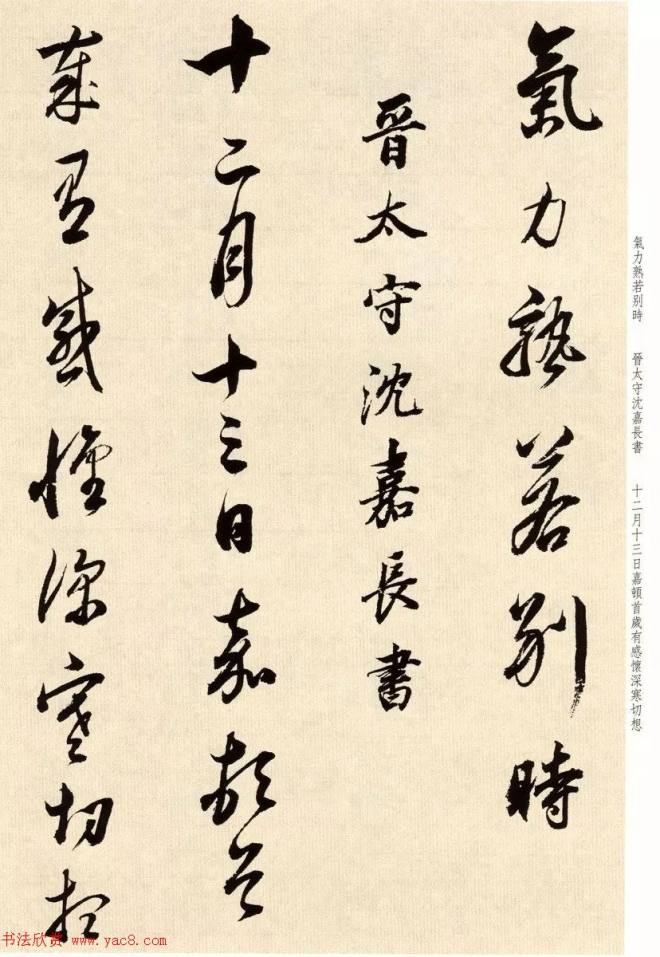 氣力孰若别時
晉太守沈嘉長書
十二月十三日嘉頓首
歲有感懷深寒切想
氣力熟若别時　晉太守沈嘉長書　十二月十三日嘉頓首歲有感懷深寒切想
书法欣赏 www.yac8.com